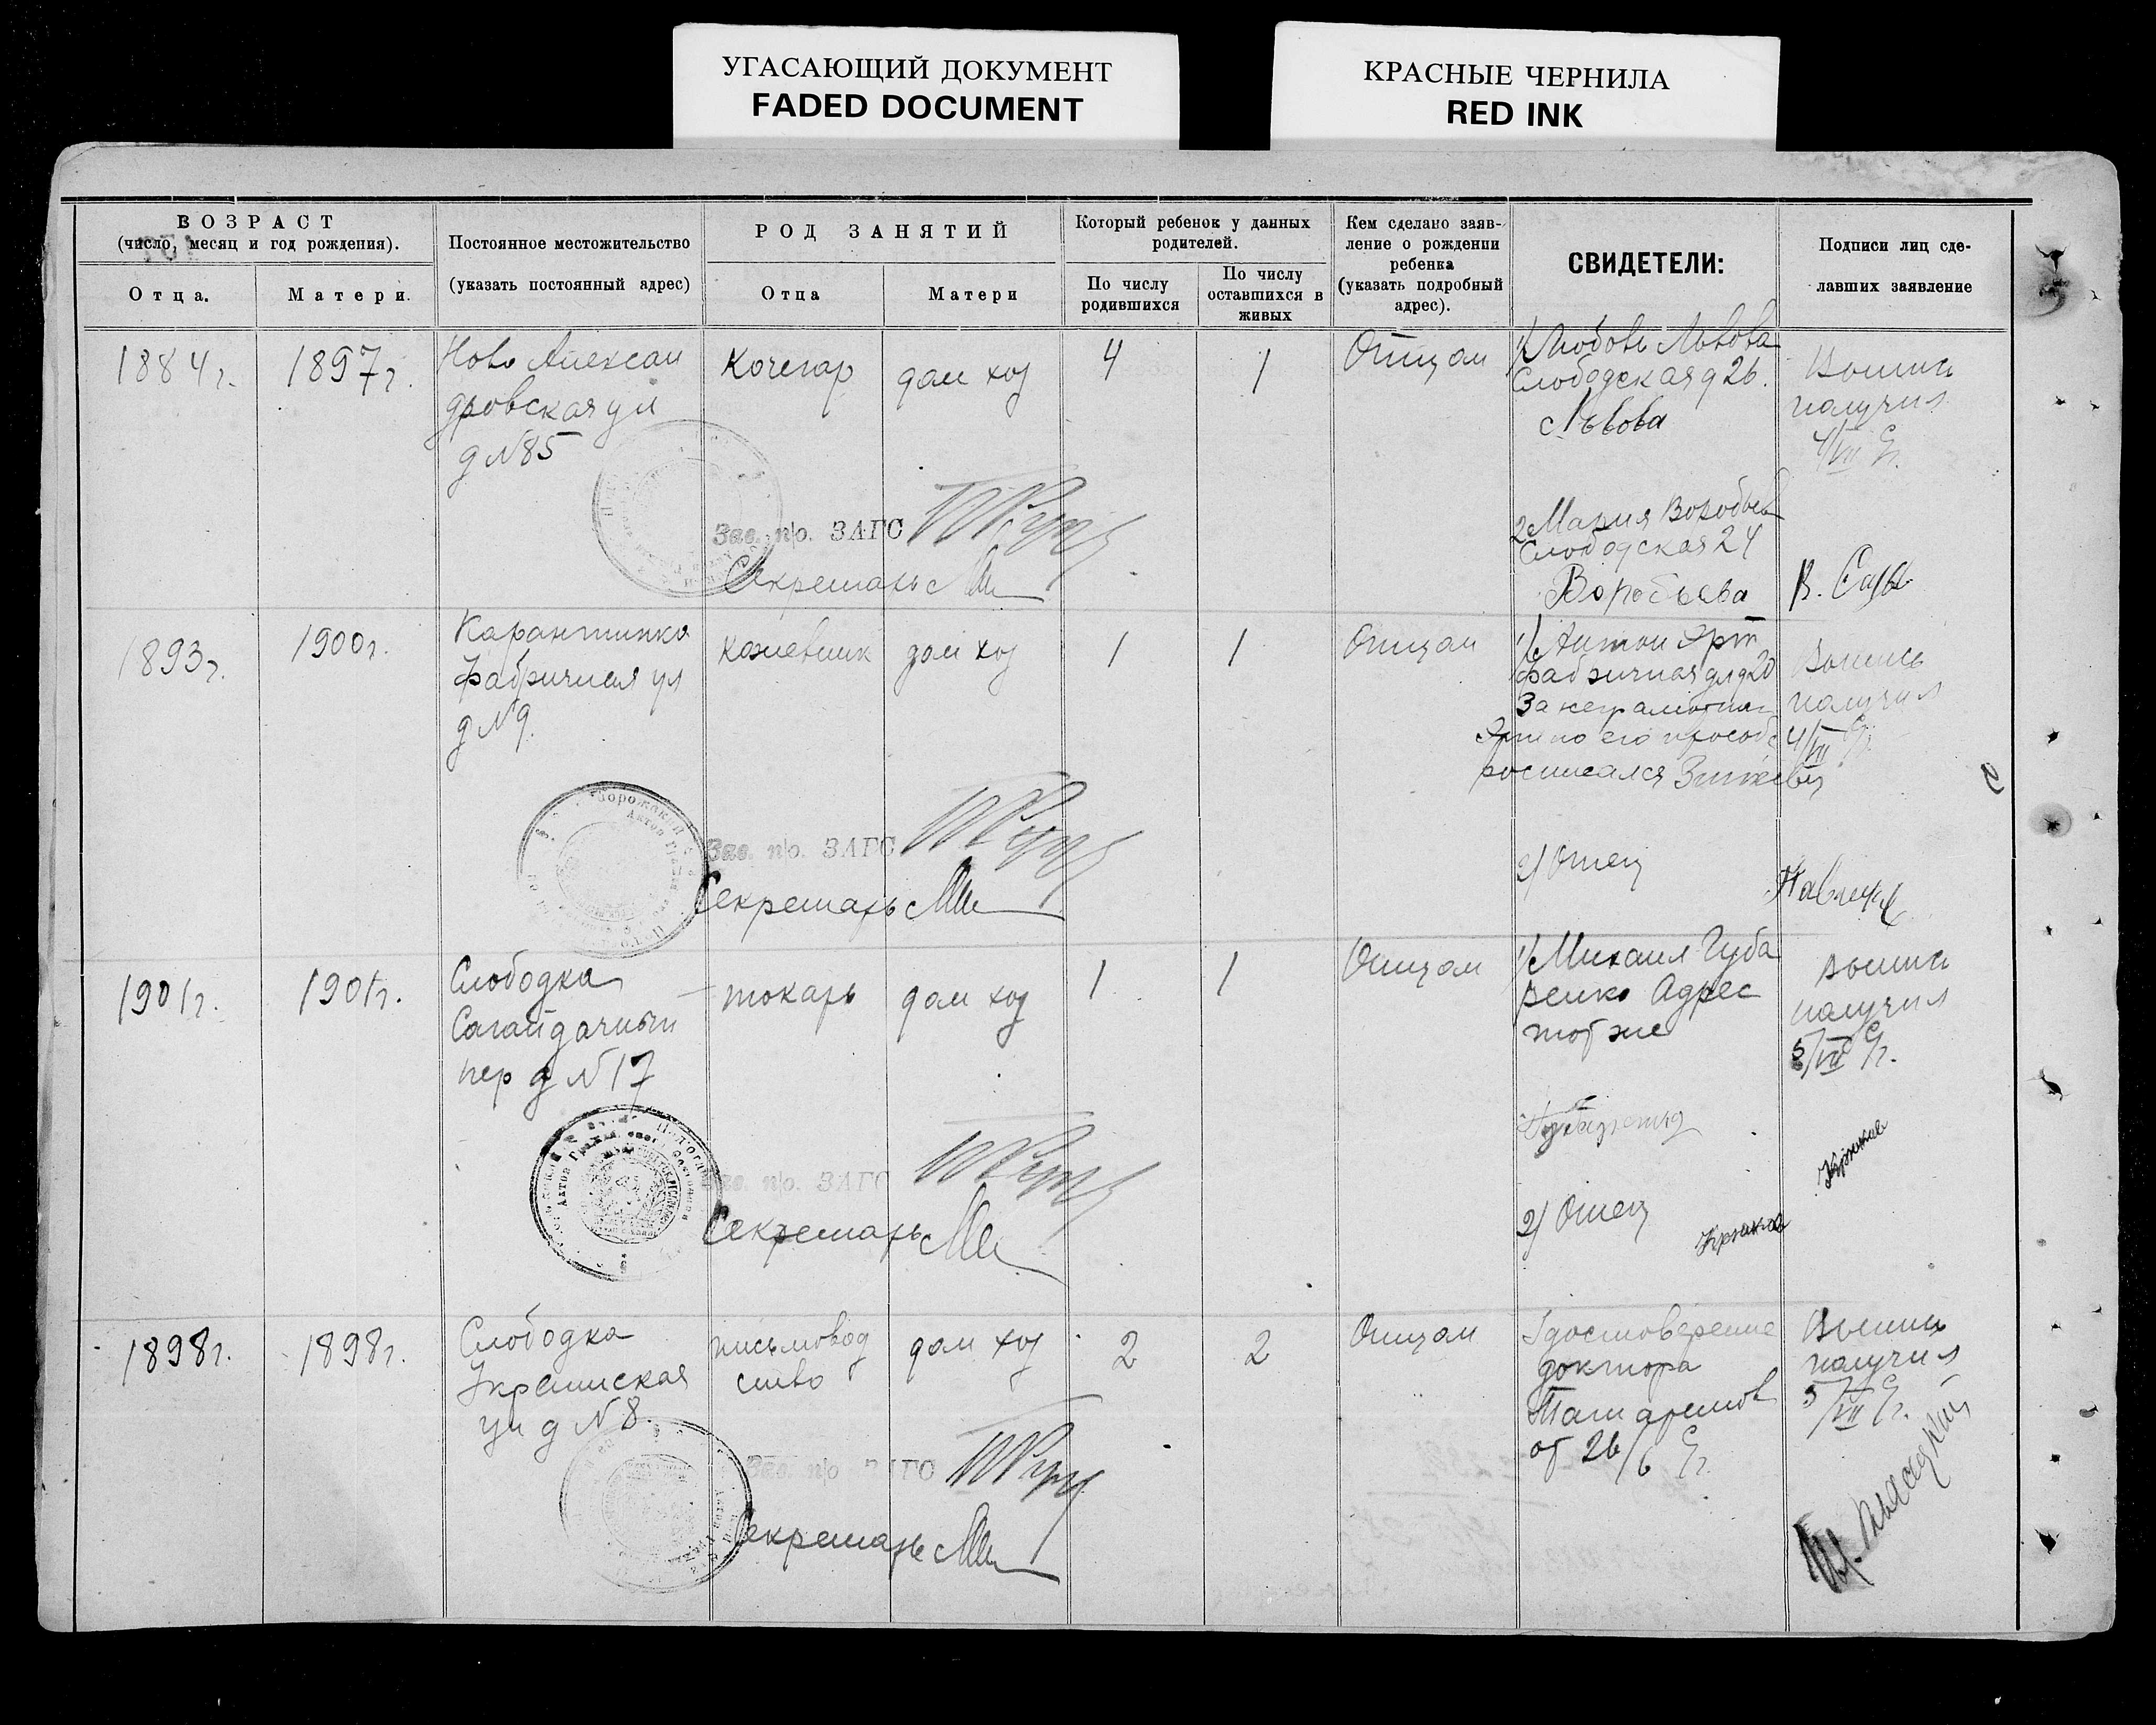 УГАСАЮЩИЙ ДОКУМЕНТ
FADED DOCUMENT
КРАСНЫЕ ЧЕРНИЛА
RED INK
ВОЗРАСТ
(число, месяц и год рождения).
Отца.
Матери.
Постоянное местожительство
(указать постоянный адрес)
РОД ЗАНЯТИЙ
Отца
Матери
Который ребенок у данных
родителей.
По числу
родившихся
По числу
оставшихся в
живых
Кем сделано заяв-
ление о рождении
ребенка
(указать подробный
адрес).
СВИДЕТЕЛИ:
Подписи лиц сде-
лавших заявление
1884 г.
1897 г.
Ново Алексан
дровская ул
д №85
Кочегар
дом хоз
4
1
Отцом
1) Любовь Львова
Слободская д 26.
Львова
2 Мария Воробьев
Слободская 24
Воробьева
Выпись
получил
4/VII
Зав. п/о. ЗАГС
Секретарь
1893 г.
1900 г.
Карантинка
Фабричная ул
д № 9.
кожевник
дом хоз
1
1
Отцом
1) Антон Эрт
Фабричная ул д 20
За неграмотнаг
по его просьб
росписался
2) Отец
Выпись
получил
4/VII
Зав. п/о. ЗАГС
Секретарь
1901 г.
1901 г.
Слободка
Сагайдачный
пер д № 17
токарь
дом хоз
1
1
Отцом
1) Михаил Губа
ренко Адрес
тот же
2) Отец
Выпись
получил
5/VII
Зав. п/о. ЗАГС
Секретарь
1898 г.
1898 г.
Слободка
Украинская
ул д № 8.
письмовод
ство
дом хоз
2
2
Отцом
Удостоверение
доктора
от 26/6
Выпись
получил
5/VII
Зав. п/о ЗАГС
Секретарь